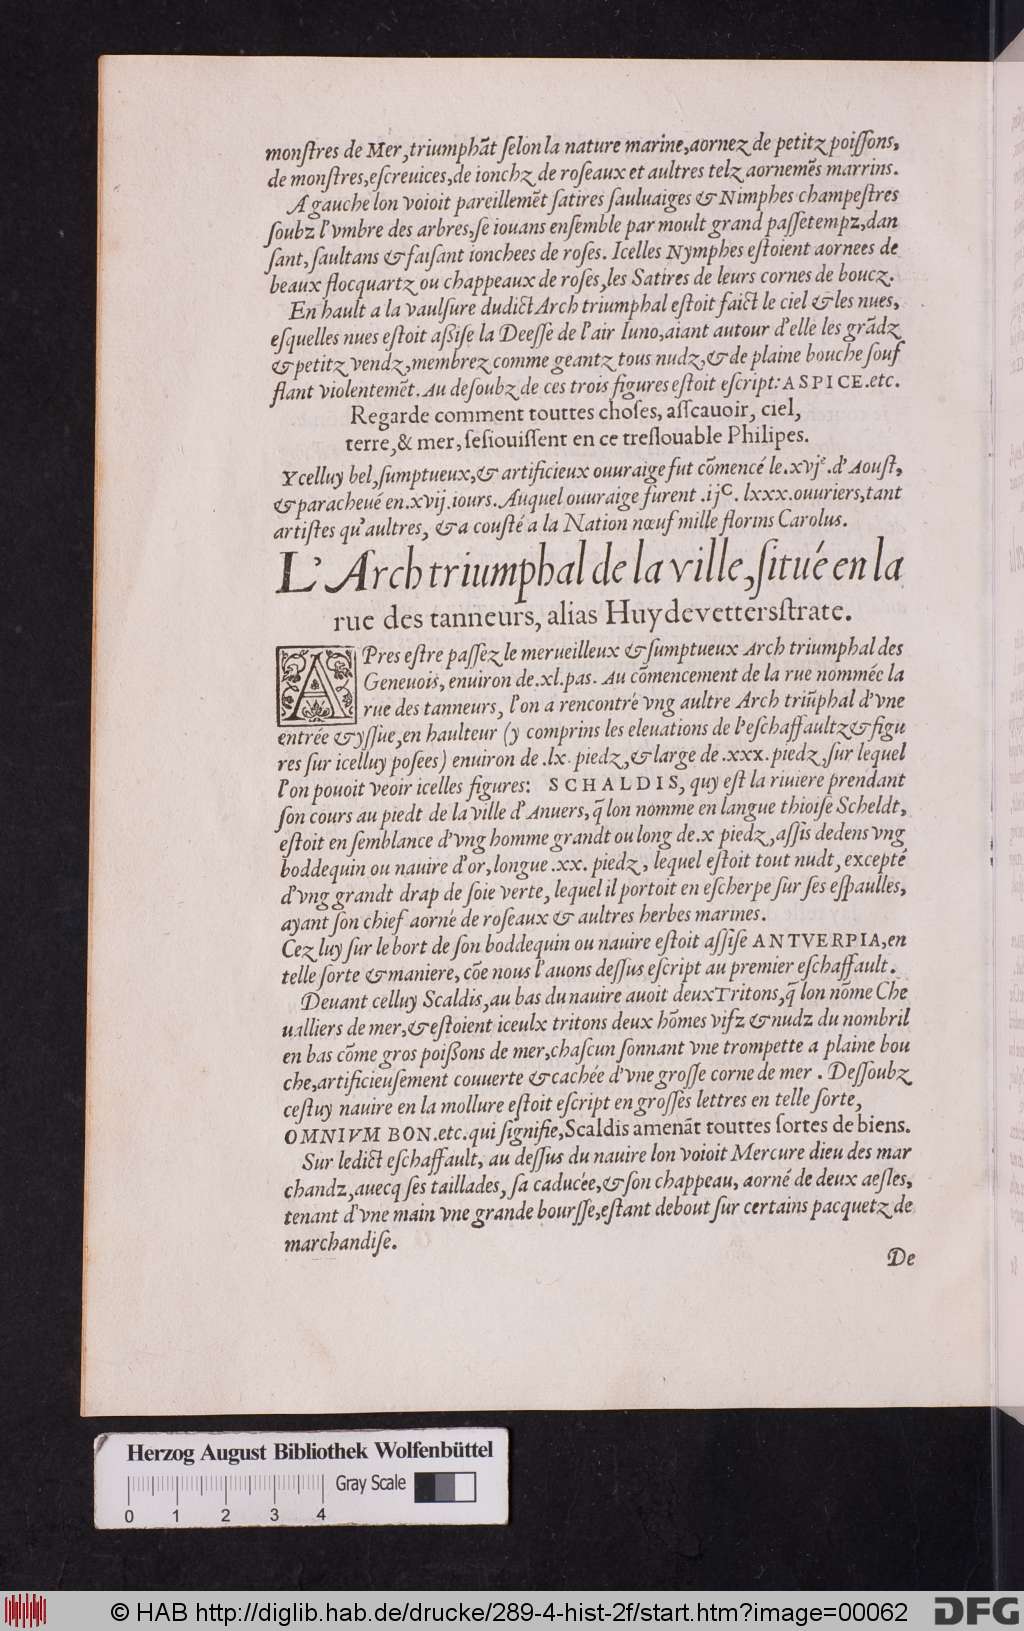 monſtres de Mer, triumphāt ſelon la nature marine, aornez de petitz poiſſons,
de monſtres, eſcreuices, de ionchz de roſeaux et aultres telz aornemẽs marrins.
A gauche lon voioit pareillemẽt ſatires ſauluaiges & Nimphes champeſtres
ſoubz l'vmbre des arbres, ſe iouans enſemble par moult grand paſſetempz, dan
ſant, ſaultans & faiſant ionchees de roſes. Icelles Nymphes eſtoient aornees de
beaux flocquartz ou chappeaux de roſes, les Satires de leurs cornes de boucz.
En hault a la vaulſure dudict Arch triumphal eſtoit faict le ciel & les nues,
eſquelles nues eſtoit aßiſe la Deeſſe de l'air Iuno, aiant autour d'elle les grādz
& petitz vendz, membrez comme geantz tous nudz, & de plaine bouche ſouf
flant violentemẽt. Au deſoubz de ces trois figures eſtoit eſcript: ASPICE. etc.
Regarde comment touttes choſes, aſſcauoir, ciel,
terre, & mer, ſeſiouiſſent en ce treſlouable Philipes.
Ycelluy bel, ſumptueux, & artificieux ouuraige fut cõmencé le .xvjᵉ. d'Aouſt,
& paracheué en .xvij. iours. Auquel ouuraige furent .ijᶜ. lxxx. ouuriers, tant
artiſtes qu'aultres, & a couſté a la Nation nœuf mille florins Carolus.
L'Arch triumphal de la ville, ſitué en la
rue des tanneurs, alias Huydevettersſtrate.
APres eſtre paſſez le merueilleux & ſumptueux Arch triumphal des
Geneuois, enuiron de .xl. pas. Au cõmencement de la rue nommée la
rue des tanneurs, l'on a rencontré vng aultre Arch triũphal d'vne
entrée & yſſue, en haulteur (y comprins les eleuations de l'eſchaffaultz & figu
res ſur icelluy poſees) enuiron de .lx. piedz, & large de .xxx. piedz, ſur lequel
l'on pouoit veoir icelles figures: SCHALDIS, quy eſt la riuiere prendant
ſon cours au piedt de la ville d'Anuers, q̃ lon nomme en langue thioiſe Scheldt,
eſtoit en ſemblance d'vng homme grandt ou long de .x piedz, aſſis dedens vng
boddequin ou nauire d'or, longue .xx. piedz, lequel eſtoit tout nudt, excepté
d'vng grandt drap de ſoie verte, lequel il portoit en eſcherpe ſur ſes eſpaulles,
ayant ſon chief aorné de roſeaux & aultres herbes marines.
Cez luy ſur le bort de ſon boddequin ou nauire eſtoit aſſiſe ANTVERPIA, en
telle ſorte & maniere, cõe nous l'auons deſſus eſcript au premier eſchaffault.
Deuant celluy Scaldis, au bas du nauire auoit deux Tritons, q̃ lon nõme Che
ualliers de mer, & eſtoient iceulx tritons deux hõmes vifz & nudz du nombril
en bas cõme gros poißons de mer, chaſcun ſonnant vne trompette a plaine bou
che, artificieuſement couuerte & cachée d'vne groſſe corne de mer. Deſſoubz
ceſtuy nauire en la mollure eſtoit eſcript en groſſes lettres en telle ſorte,
OMNIVM BON. etc. qui ſignifie, Scaldis amenāt touttes ſortes de biens.
Sur ledict eſchaffault, au deſſus du nauire lon voioit Mercure dieu des mar
chandz, auecq ſes taillades, ſa caducée, & ſon chappeau, aorné de deux aeſles,
tenant d'vne main vne grande bourſſe, eſtant debout ſur certains pacquetz de
marchandiſe.
De
Herzog August Bibliothek Wolfenbüttel
Gray Scale
0 1 2 3 4
© HAB http://diglib.hab.de/drucke/289-4-hist-2f/start.htm?image=00062
DFG